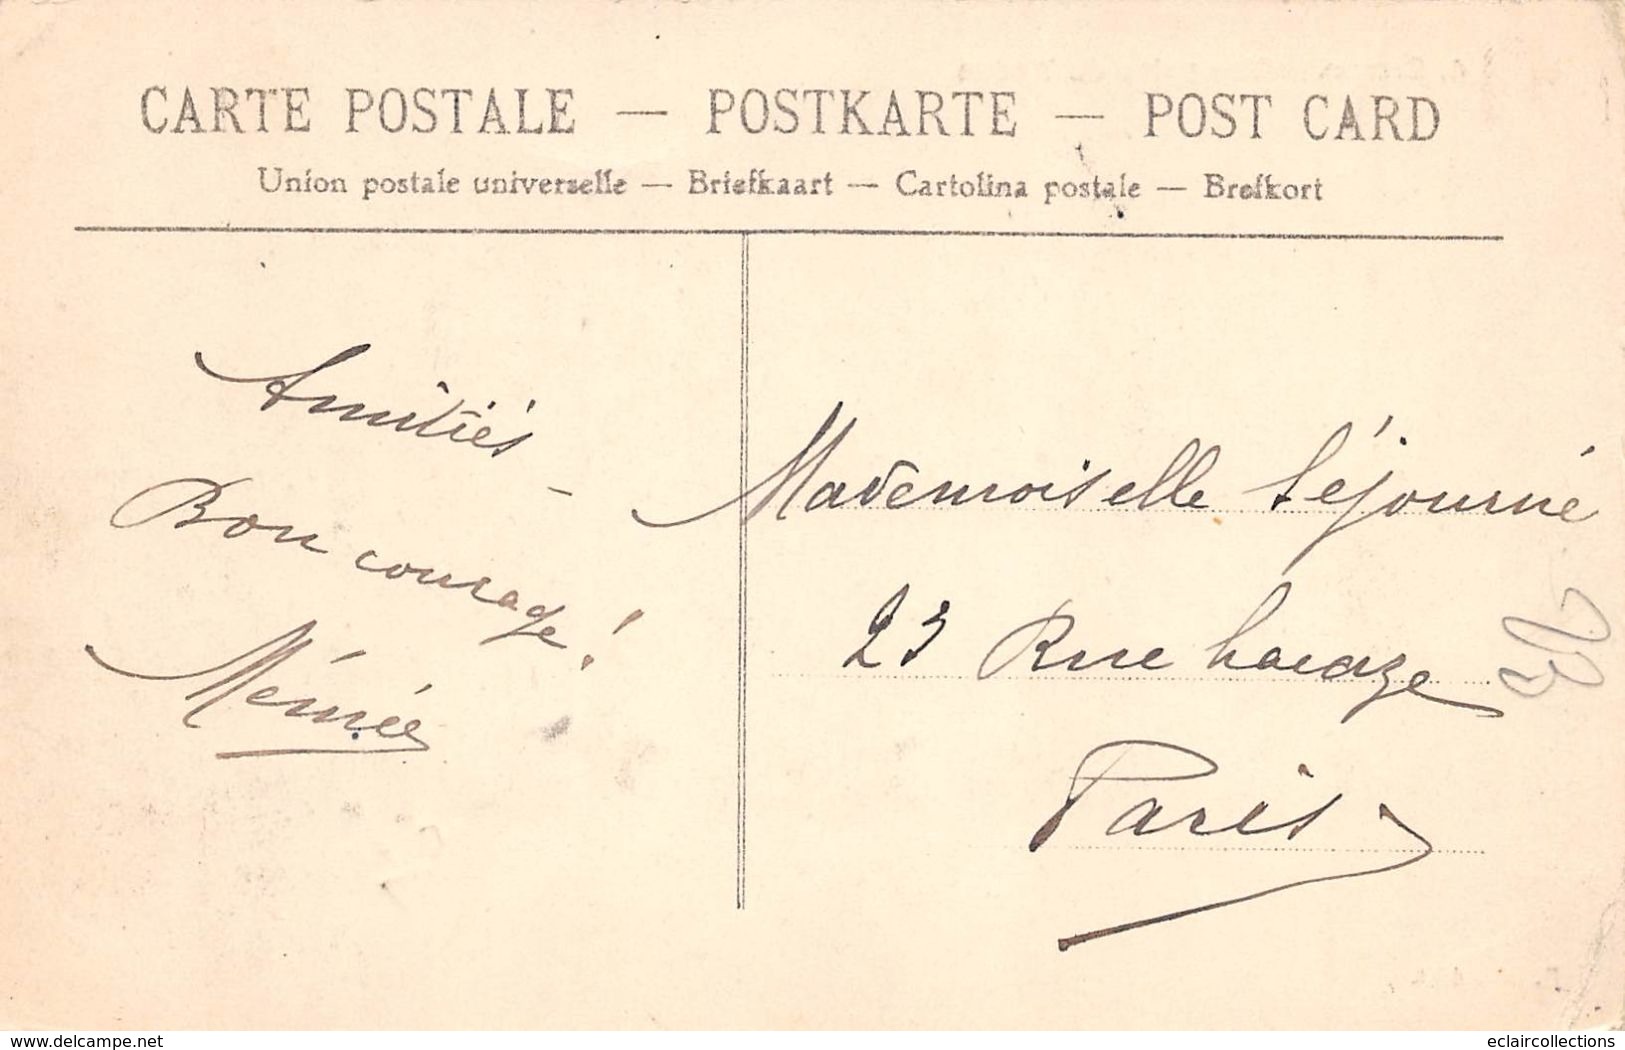 CARTE POSTALE — POSTKARTE — POST CARD
Union postale universelle — Briefkaart — Cartolina postale — Brefkort
Amitiés –
Bon courage !
Mémée
Mademoiselle Séjourné
23 Rue Lacaze
Paris
delcampe.net
eclaircollections